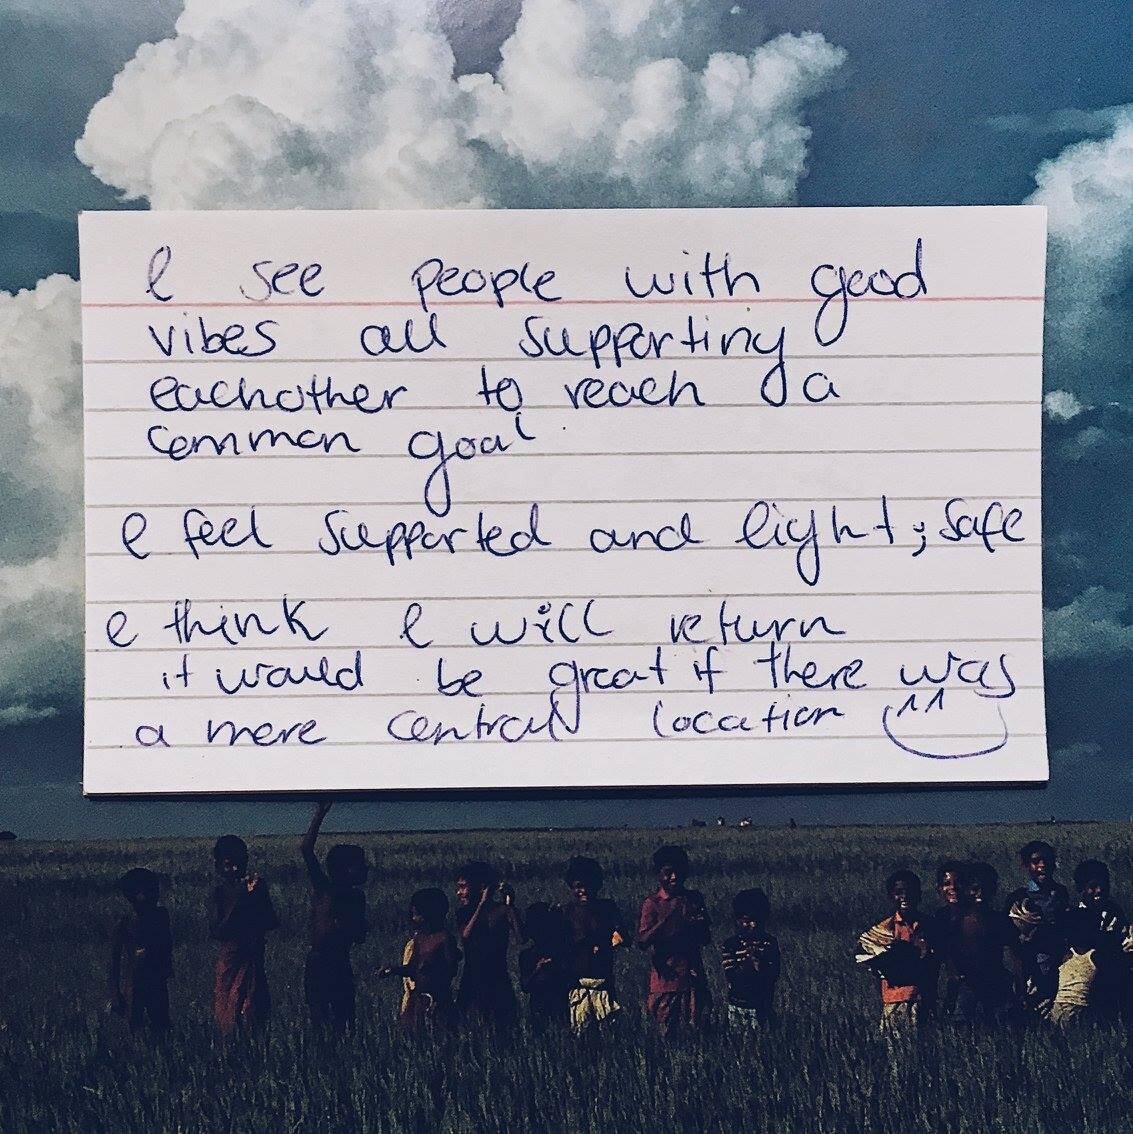 I see people with good
vibes all supporting
eachother to reach a
common goal
I feel supported and light; safe
I think I will return
it would be great if there was
a more central location